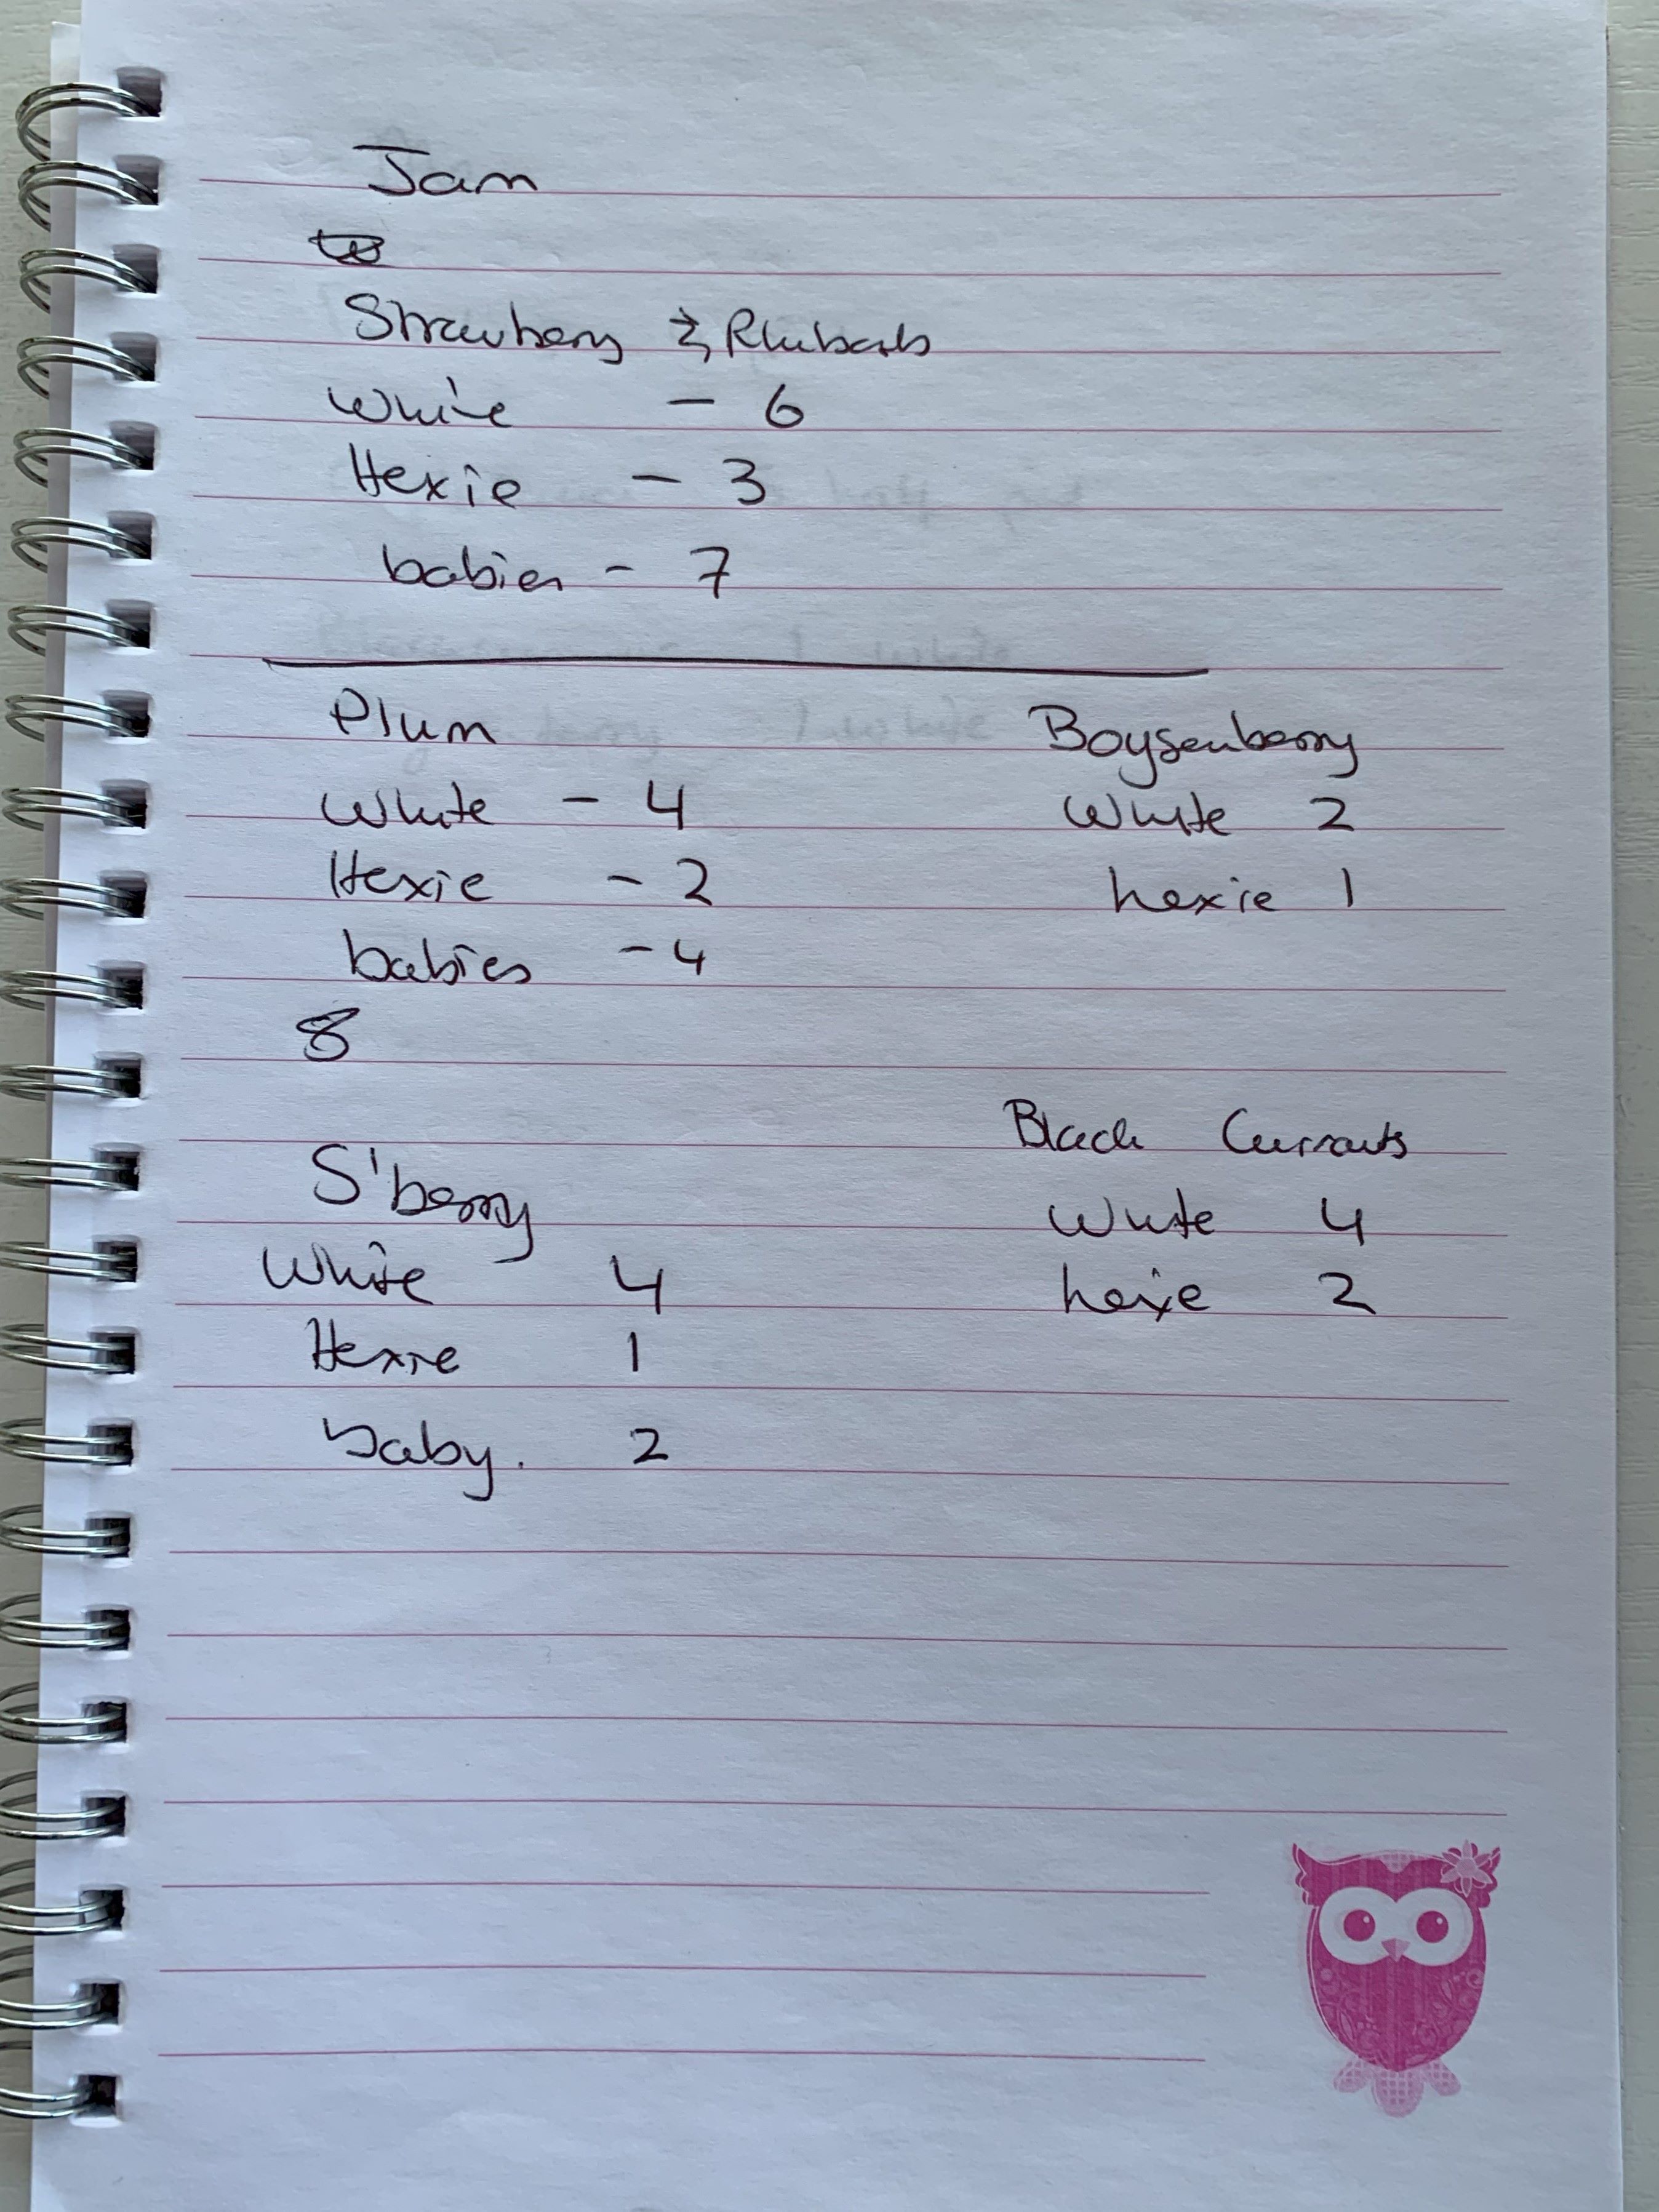 Jam
Strawberry & Rhubarb
White - 6
Hexie - 3
babies - 7
Plum
White - 4
Hexie - 2
babies - 4
8
Boysenberry
White 2
hexie 1
S'berry
White 4
Hexie 1
baby. 2
Black Currants
White 4
hexie 2